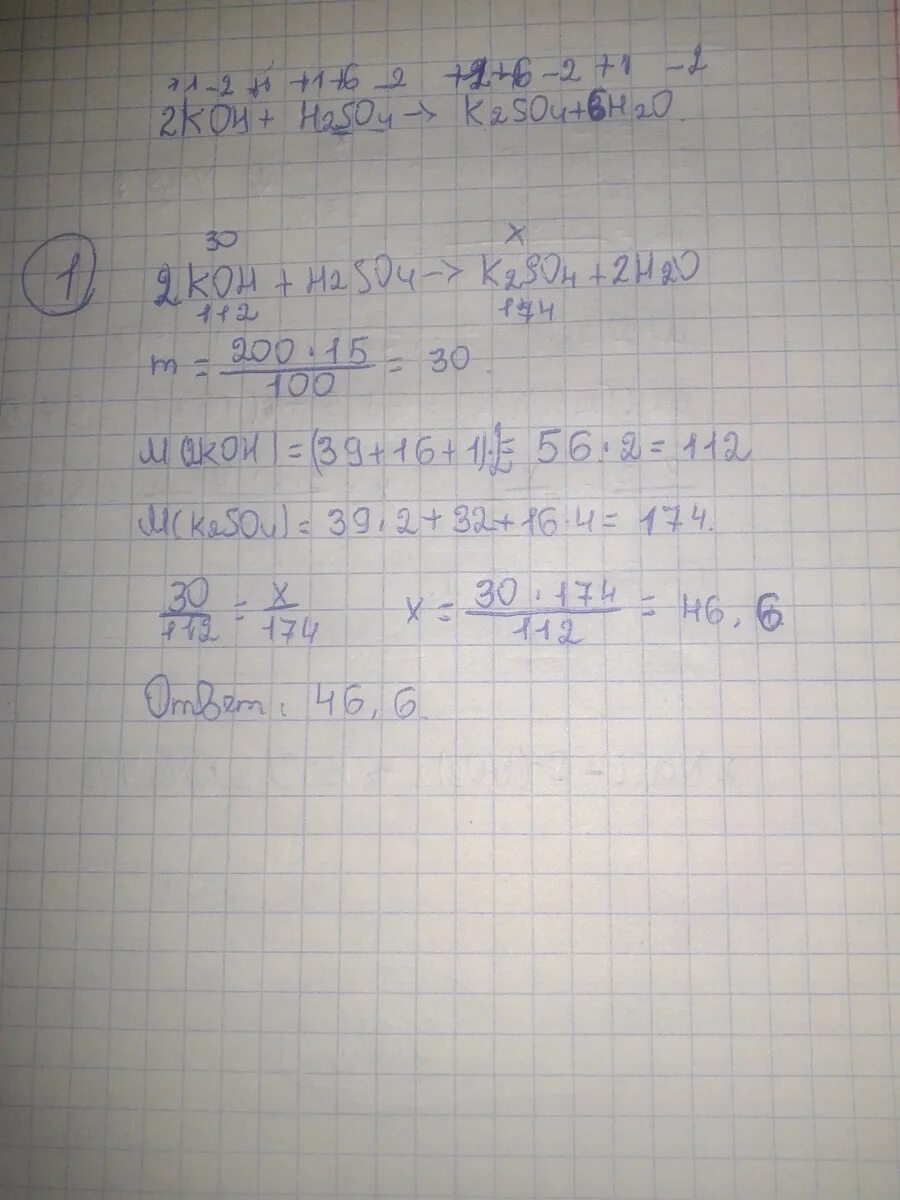 +1 -2 +1 +1 +6 -2 +2 +6 -2 +1 -2
2KOH + H2SO4 → K2SO4 + 6H2O
30 x
1 2KOH + H2SO4 → K2SO4 + 2H2O
112 174
m = 200·15/100 = 30
M(2KOH) = (39+16+1)·2 = 56·2 = 112
M(K2SO4) = 39·2+32+16·4 = 174.
30/112 = x/174 x = 30·174/112 = 46,6
Ответ: 46,6